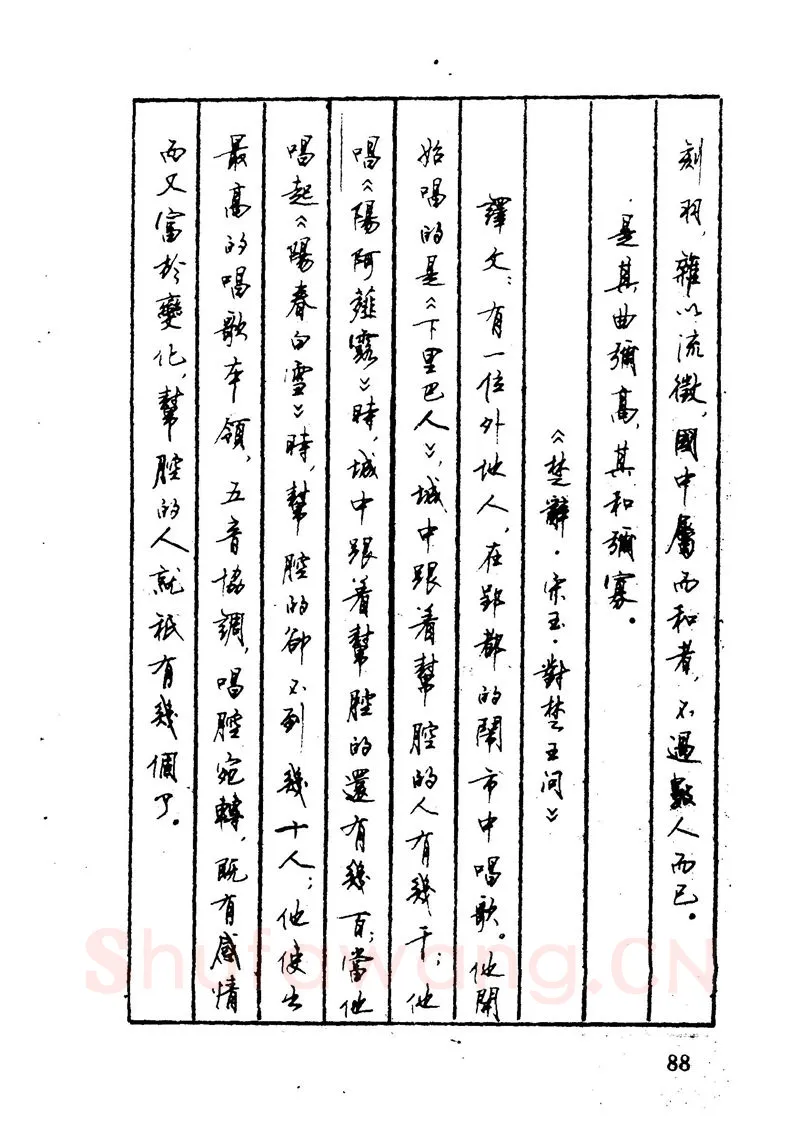 刻羽，雜以流徵，國中屬而和者，不過數人而已。
是其曲彌高，其和彌寡。
《楚辭·宋玉·對楚王问》
譯文：有一位外地人，在郢都的鬧市中唱歌。他開
始唱的是《下里巴人》，城中跟着幫腔的人有幾千；他
唱《陽阿薤露》時，城中跟着幫腔的還有幾百；當他
唱起《陽春白雪》時，幫腔的卻不到幾十人；他使出
最高的唱歌本領，五音協調，唱腔宛轉，既有感情
而又富於變化，幫腔的人就衹有幾個了。
Shufawang.CN
88